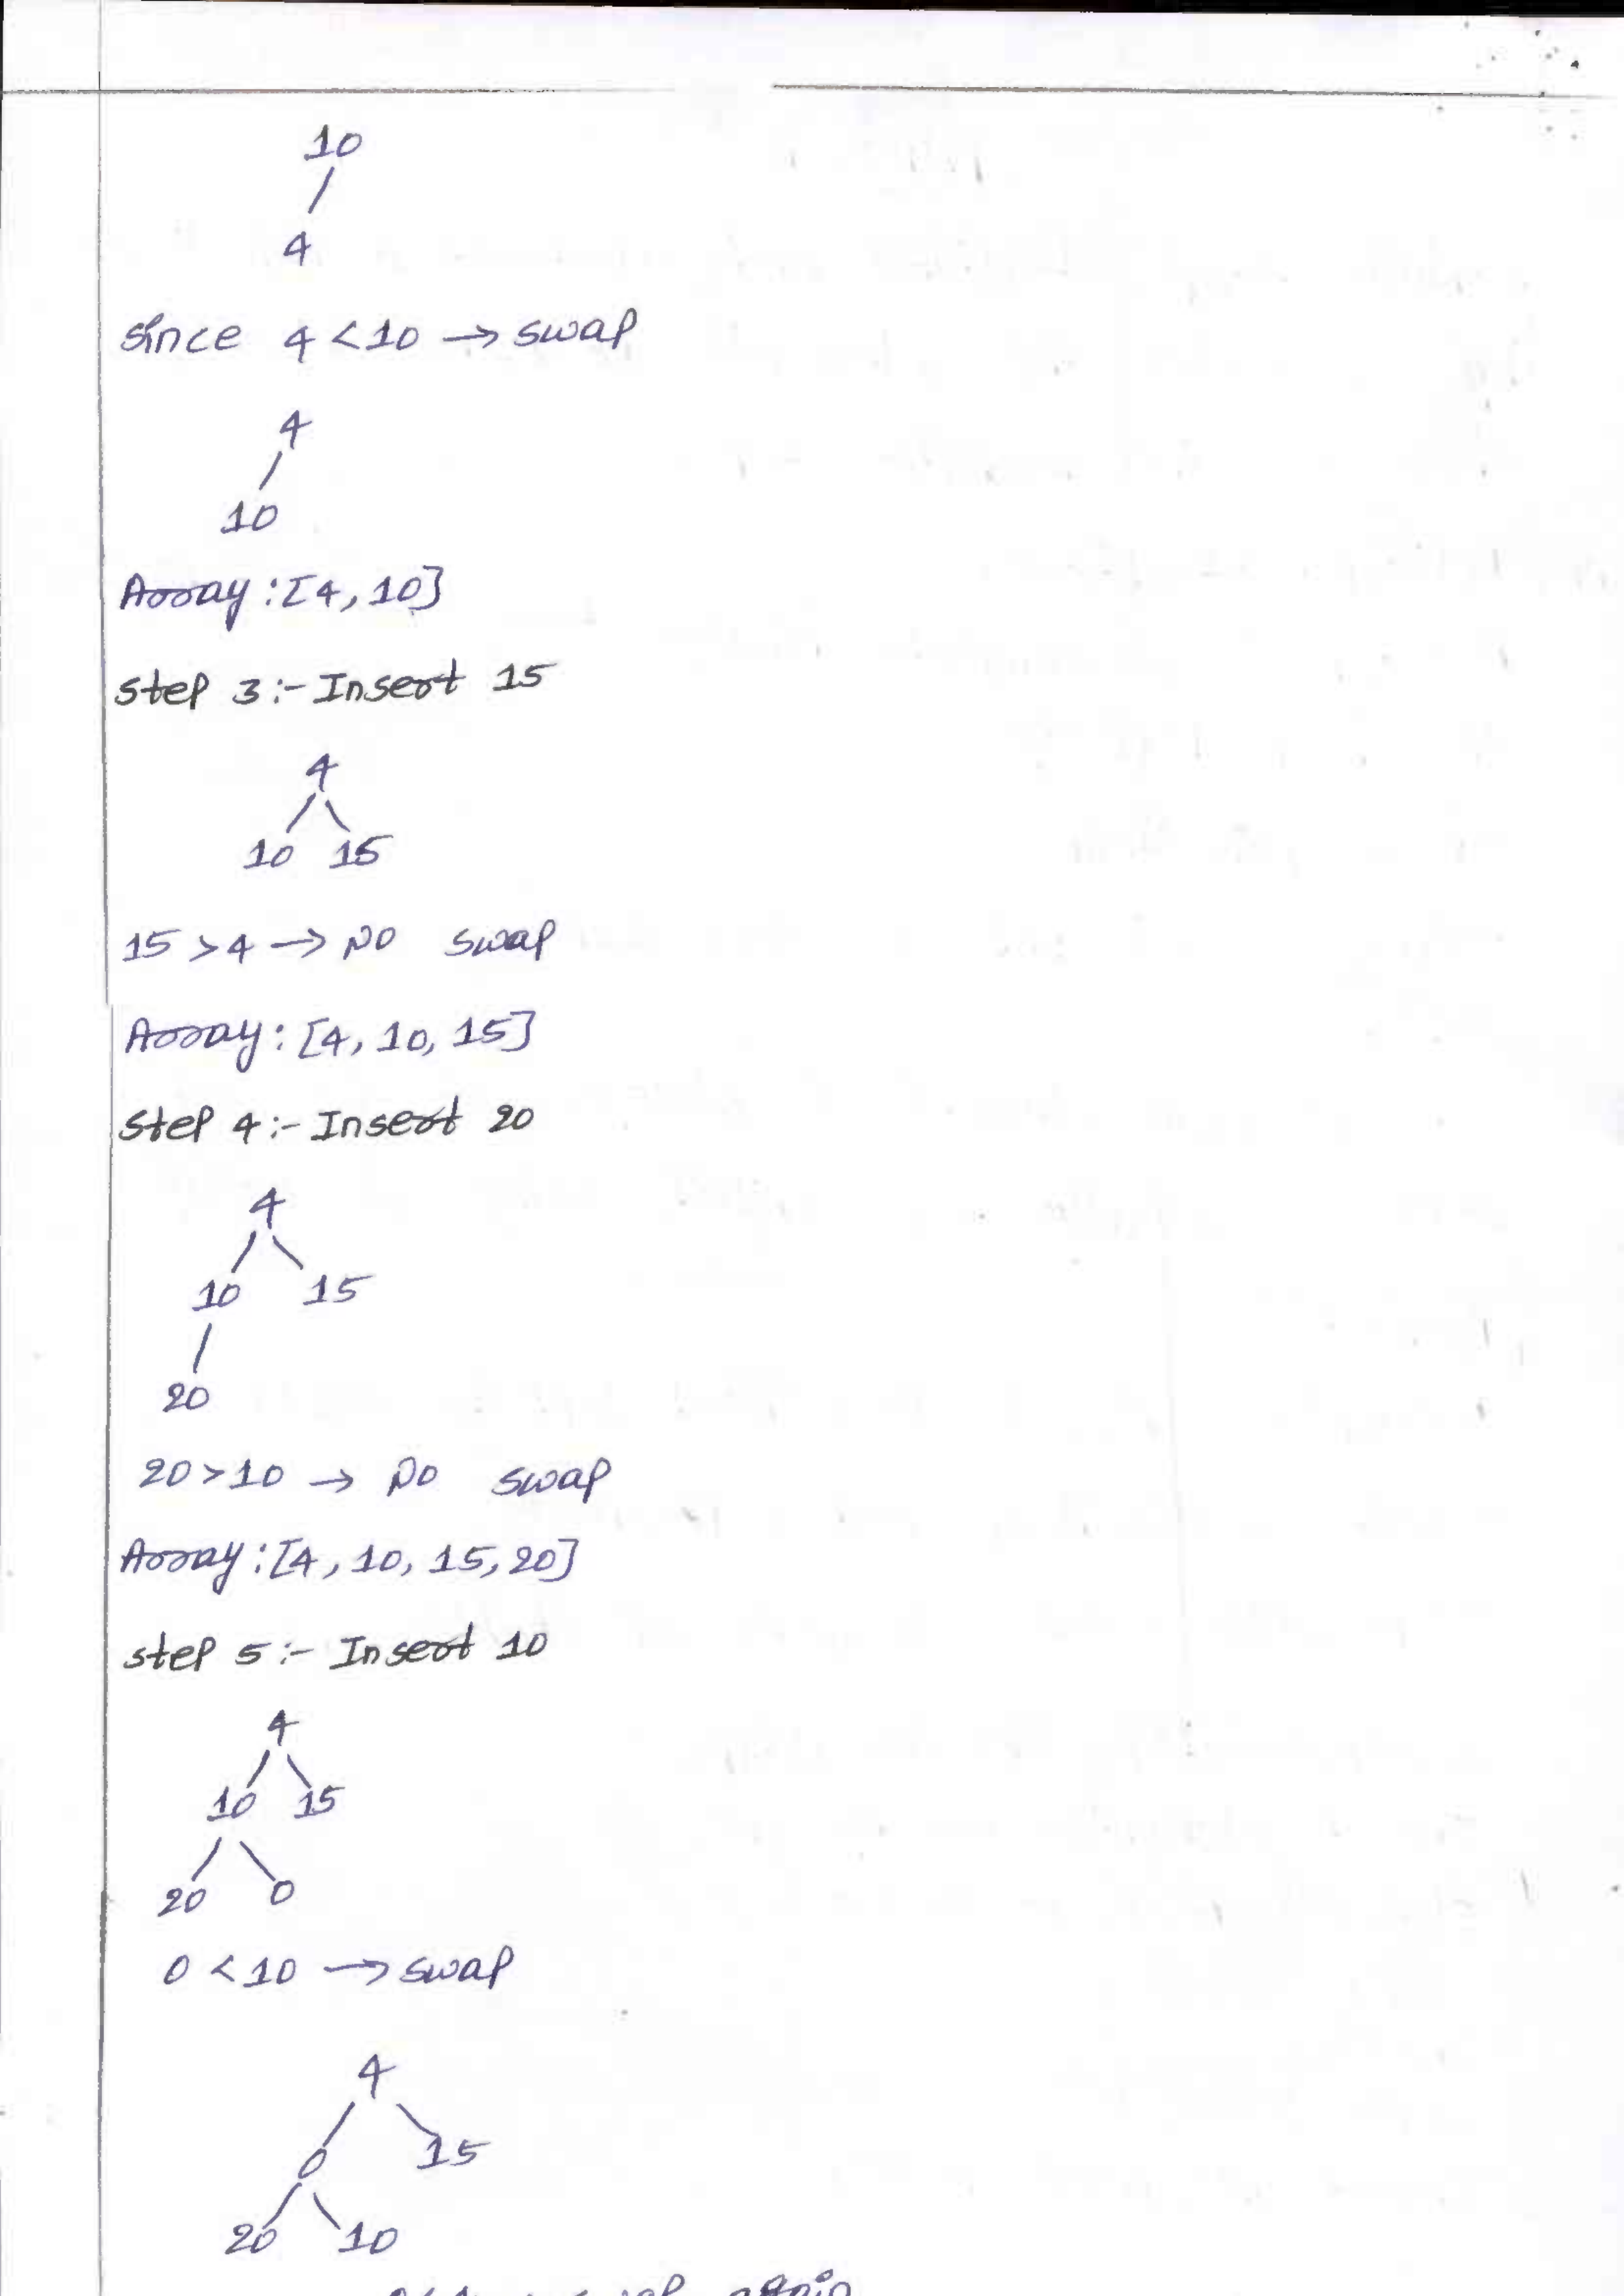 10
4
Since 4 < 10 → swap
4
10
Array : [4, 10]
Step 3 :- Insert 15
4
10 15
15 > 4 → No swap
Array : [4, 10, 15]
Step 4 :- Insert 20
4
10 15
20
20 > 10 → No swap
Array : [4, 10, 15, 20]
step 5 :- Insert 10
4
10 15
20 0
0 < 10 → swap
4
0 15
20 10
swap again